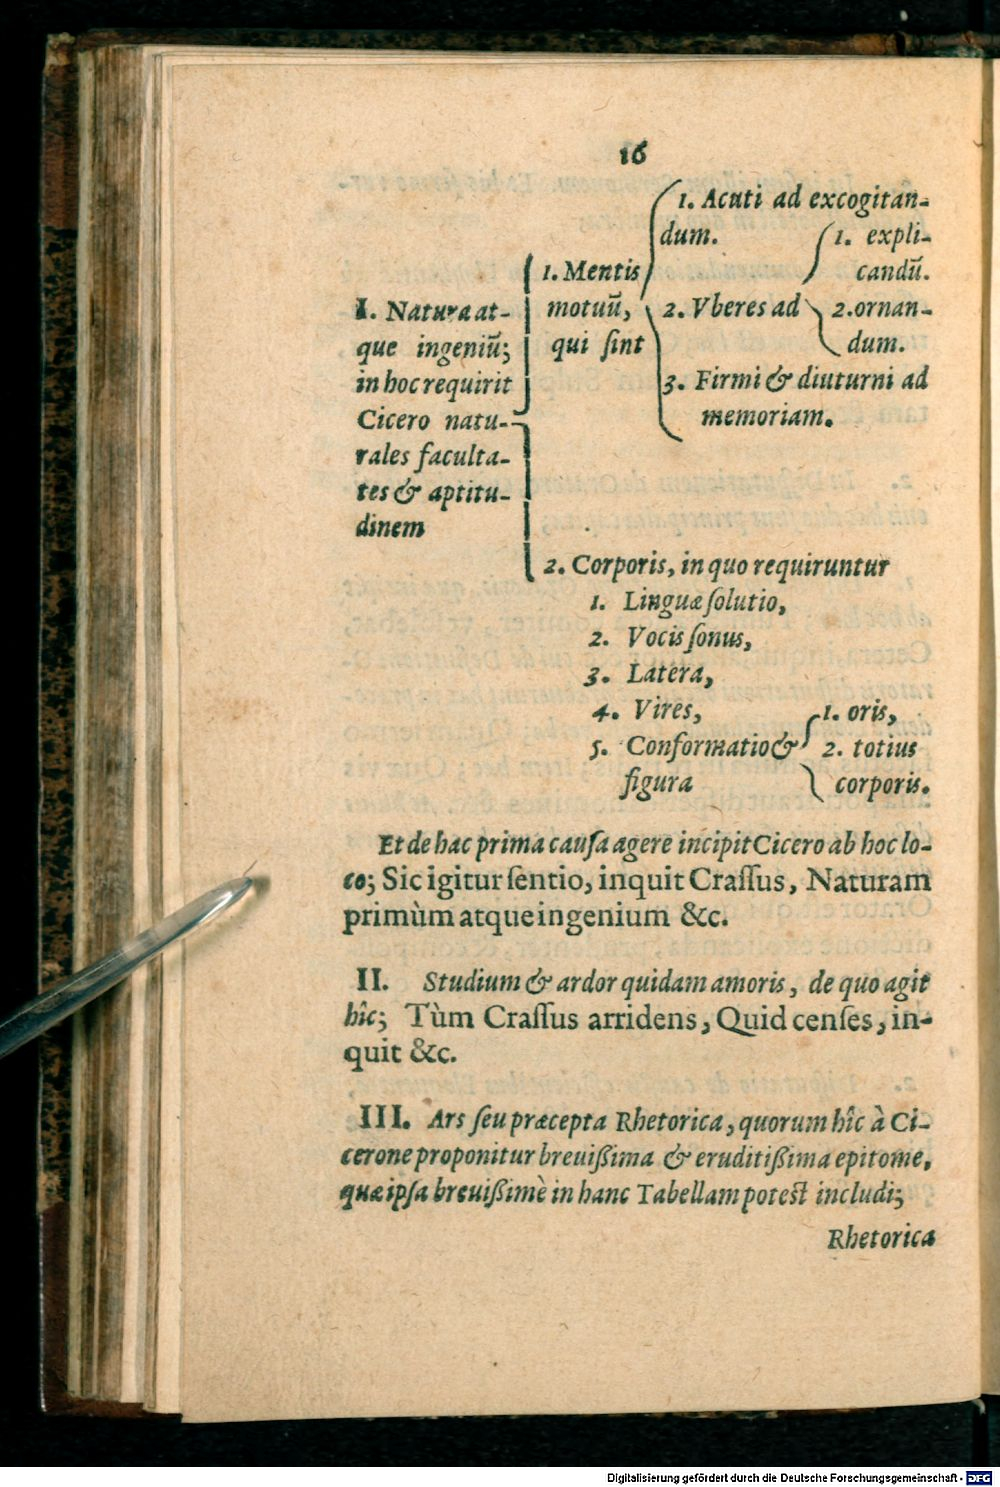 16
I. Natura at-
que ingeniũ;
in hoc requirit
Cicero natu-
rales faculta-
tes & aptitu-
dinem
1. Mentis
motuũ,
qui ſint
1. Acuti ad excogitan-
dum.
2. Vberes ad
1. expli-
candũ.
2. ornan-
dum.
3. Firmi & diuturni ad
memoriam.
2. Corporis, in quo requiruntur
1. Linguæ ſolutio,
2. Vocis ſonus,
3. Latera,
4. Vires,
5. Conformatio &
figura
1. oris,
2. totius
corporis.
Et de hac prima cauſa agere incipit Cicero ab hoc lo-
co; Sic igitur ſentio, inquit Craſſus, Naturam
primùm atque ingenium &c.
II. Studium & ardor quidam amoris, de quo agit
hîc; Tùm Craſſus arridens, Quid cenſes, in-
quit &c.
III. Ars ſeu præcepta Rhetorica, quorum hîc à Ci-
cerone proponitur breuißima & eruditißima epitome,
quæ ipſa breuißimè in hanc Tabellam poteſt includi;
Rhetorica
Digitalisierung gefördert durch die Deutsche Forschungsgemeinschaft - DFG